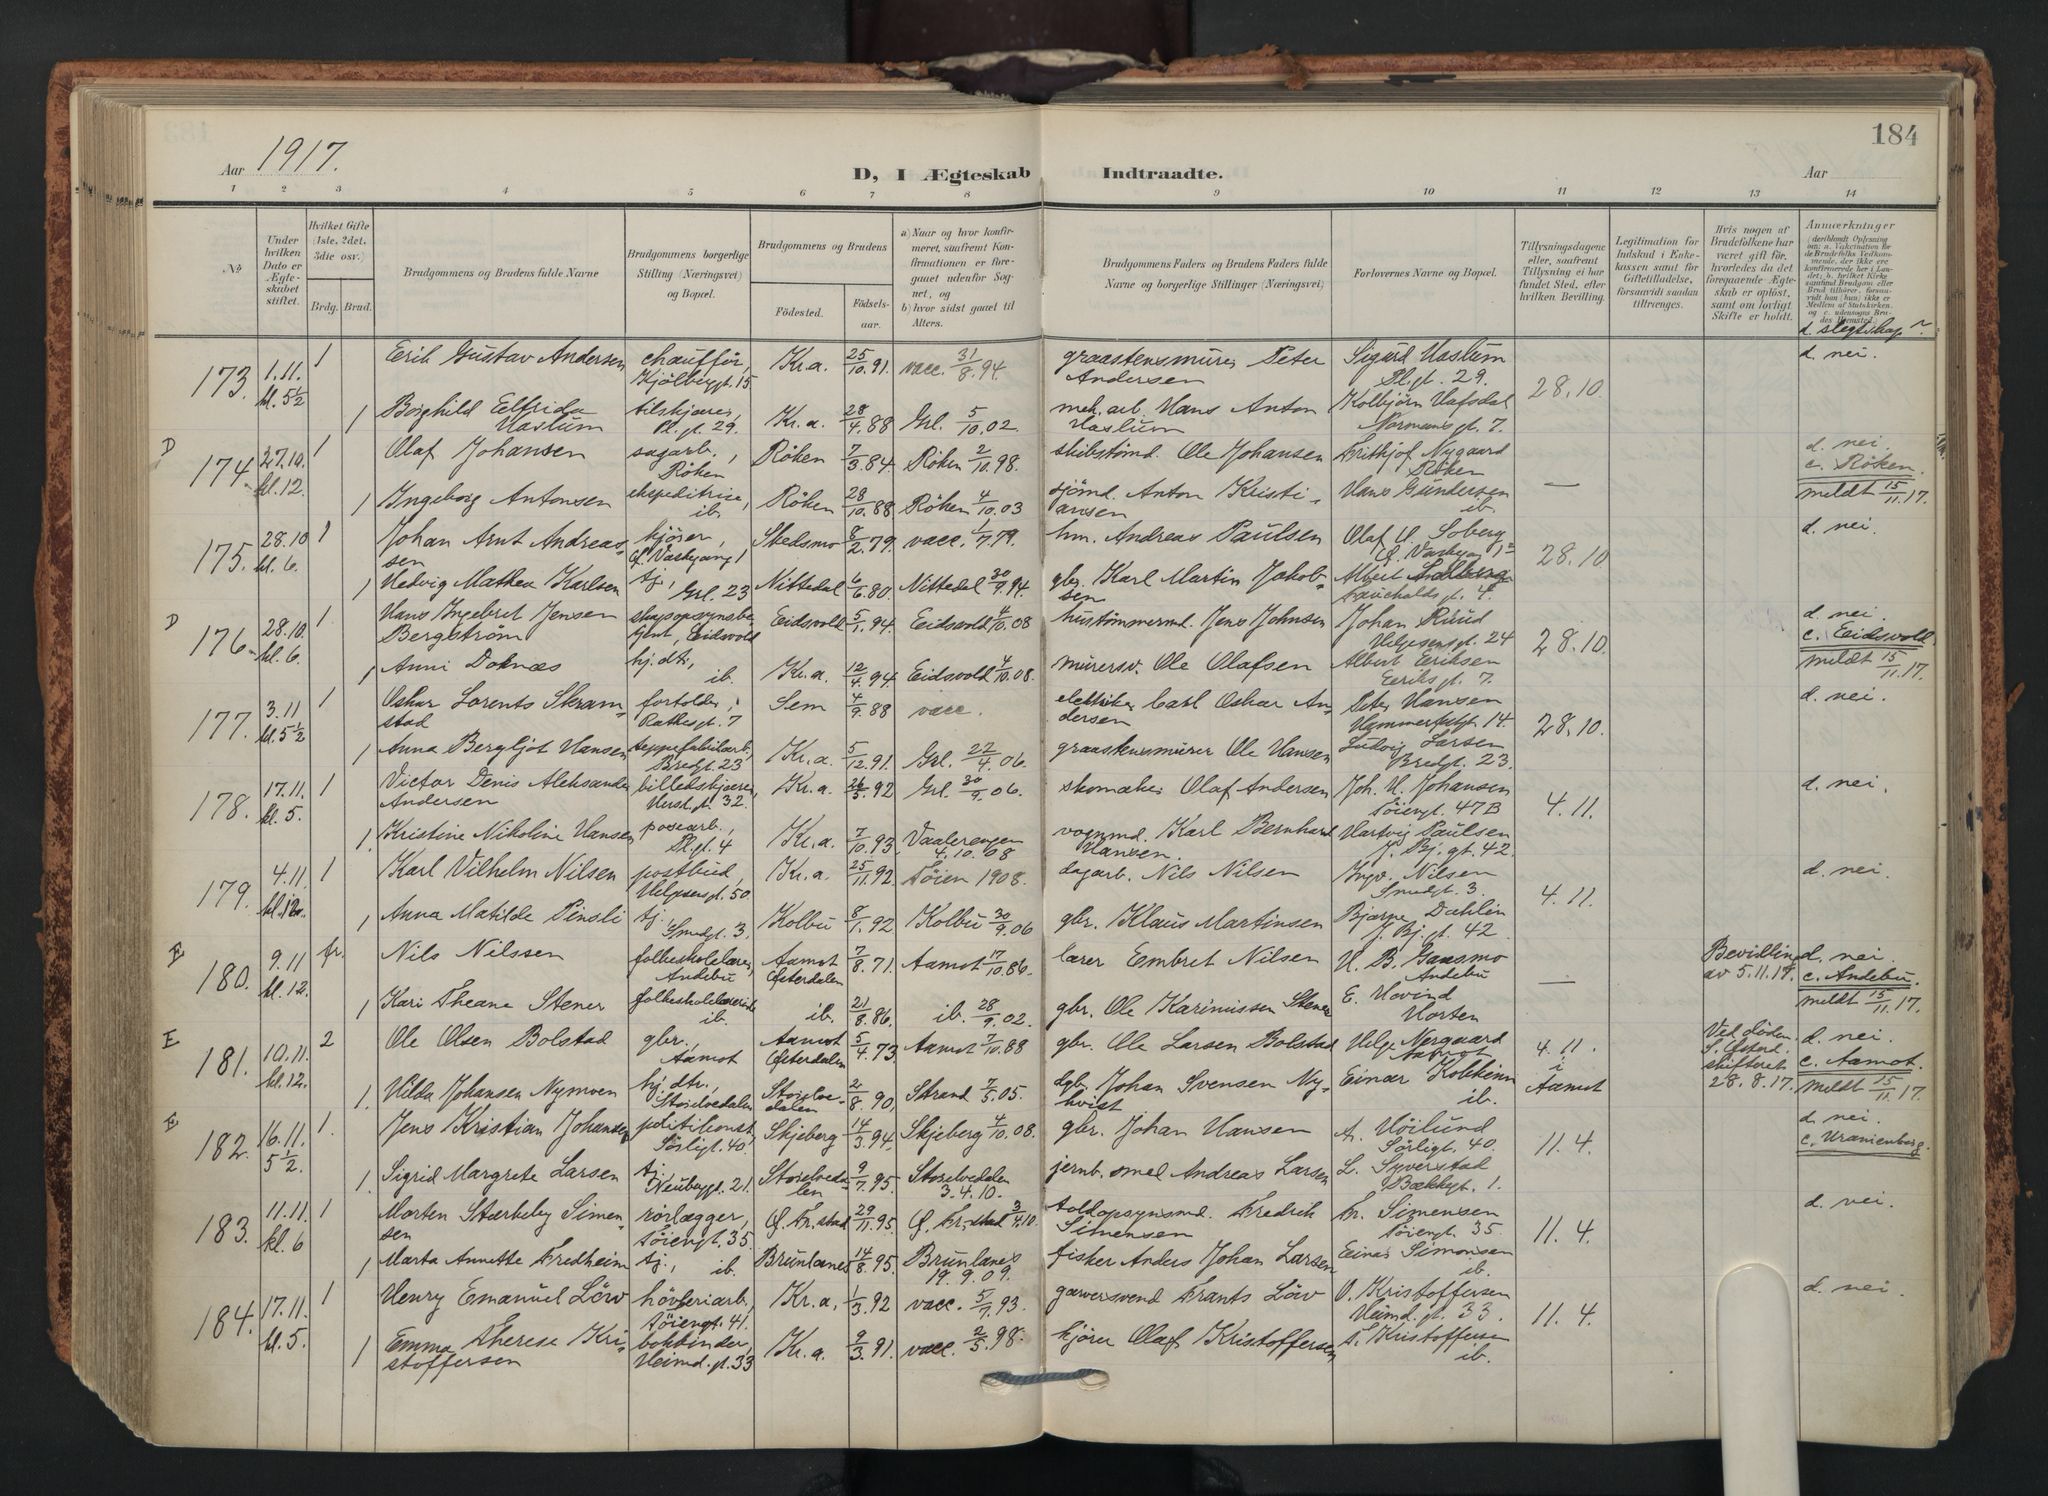 184
Aar 1917.
D, I Ægteskab Indtraadte.
Aar
1 2 3 4 5 6 7 8 9 10 11 12 13 14
No
Under hvilken Dato er Ægteskabet stiftet.
Hvilket Gifte (1ste, 2det, 3die osv.)
Brdg. Brud.
Brudgommens og Brudens fulde Navne
Brudgommens borgerlige Stilling (Næringsvei) og Bopæl.
Brudgommens og Brudens
Födested.
Födselsaar.
a) Naar og hvor konfirmeret, saafremt Konfirmationen er foregaaet udenfor Sognet, og
b) hvor sidst gaaet til Alters.
Brudgommens Faders og Brudens Faders fulde Navne og borgerlige Stillinger (Næringsvei)
Forlovernes Navne og Bopæl.
Tillysningsdagene eller, saafremt Tillysning ei har fundet Sted, efter hvilken Bevilling.
Legitimation for Indskud i Enkekassen samt for Giftetilladelse, forsaavidt saadan tiltrænges.
Hvis nogen af Brudefolkene har været gift før, hvorledes da det foregaaende Ægteskab er opløst, samt om lovligt Skifte er holdt.
Anmærkninger
d. slegtskap?
173. 1.11. kl. 5½ 1 Eerik Gustav Andersen chauffør, Kjölberggt. 15 Kr.a. 25/10.91. vacc. 31/8.94. graastensmurer Peter Andersen Sigurd Haslum Pl.gt. 29. 28.10. d. nei.
1 Borghild Elfrida Haslum tilskjærer, Pl.gt. 29. Kr.a. 28/4.88 Grl. 5/10.02. mek. arb. Hans Anton Haslum Kolbjörn Hafsdal Normansgt. 7.
D 174. 27.10. kl. 12. 1 Olaf Johansen sagarb., Röken Röken 7/3.84. Röken 2/10.98. skibstömd. Ole Johansen Frithjof Nygaard Röken — d. nei. c. Röken. meldt 15/11.17.
1 Ingeborg Antonsen ekspeditrice, ib. Röken 28/10.88. Röken 4/10.03 sjömd. Anton Kristiansen Hans Gundersen ib.
175. 28.10 kl. 6. 1 Johan Arnt Andreassen kjörer, Skedsmo 8/2.79. vacc. 1/7.79. hm. Andreas Paulsen Olaf Soberg 28.10 d. nei.
1 Hedvig Mathea Karlsen tj., Grl. 23 Nittedal 6/6.80. Nittedal 30/9.94. gbr. Karl Martin Jakobsen Albert
D 176. 28.10. kl. 6. 1 Hans Ingebret Jensen Bergström Eidsvold Eidsvold 5/1.94. Eidsvold 4/10.08 hustömmermd. Jens Johnsen Johan Ruud Helgesensgt. 24 28.10. d. nei. c. Eidsvold. meldt 15/11.17.
1 Anni Doknæs hj.dtr., ib. Kr.a. 12/4.94. Eidsvold 4/10.08. murersv. Ole Olafsen Albert Eeriksen Eeriksgt. 7.
177. 3.11 kl. 5½ 1 Oskar Lorents Skramstad fortolder, Rathkesgt. 7 Sem 4/9.88 vacc. elektriker Carl Oskar Andersen Peter Hansen Hammerfestgt. 14. 28.10. d. nei.
1 Anna Bergljot Hansen teppefabrikarb., Bredgt. 23 Kr.a. 5/12.91. Grl. 22/4.06. graastensmurer Ole Hansen Ludvig Larsen Bredgt. 23.
178. 17.11. kl. 5. 1 Victor Denis Aleksander Andersen billedskjærer, Herslgt. 32. Kr.a. 26/5.92 Grl. 30/9.06. skomaker Olaf Andersen Joh. H. Johansen Töiengt. 47B 4.11. d. nei.
1. Kristine Nikoline Hansen posearb., Pl.gt. 4 Kr.a. 7/10.93. Vaalerengen 4.10.08 vognmd. Karl Bernhard Hansen. Hartvig Paulsen J. Bj.gt. 42.
179. 4.11. kl. 12. 1 Karl Vilhelm Nilsen postbud, Helgesensgt. 50. Kr.a. 25/11.92. Töien 1908. dagarb. Nils Nilsen Ingv. Nilsen Smedgt. 3. 4.11. d. nei.
1 Anna Matilde Pinsli tj. Smedgt. 3, Kolbu 8/1.92 Kolbu 30/9.06 gbr. Klaus Martinsen Bjarne Dahlén J. Bj.gt. 42
E 180. 9.11 kl. 12. fr. Nils Nilssen folkeskolelærer, Andebu Aamot Österdalen 7/8.71. Aamot 17/10.86. lærer Embret Nilsen H. B. Gaasmo Andebu — Bevilling av 5.11.17. d. nei. c. Andebu. meldt 15/11.17.
1 Kari Theane Stener folkeskolelærerinde ib. ib. 21/8.86. ib. 28/9.02. gbr. Ole Karinussen Stener E. Hovind Horten
E 181. 10.11. kl. 12. 2 Ole Olsen Bolstad gbr., Aamot Aamot Österdalen 5/4.73 Aamot 7/10.88 gbr. Ole Larsen Bolstad Helge Nergaard Aamot 4.11. i Aamot Ved döden. skifteret 28.8.17. d. nei. c. Aamot. meldt 15/11.17.
1. Hilda Johansen Nymoen hj.dtr., Storelvedalen Storelvedalen 2/8.90. Strand 7/5.05. dgb. Johan Svensen Nykvist Einar Kolkinn ib.
E 182. 16.11. 5½ 1. Jens Kristian Johansen politikonst. Sörligt. 40. Skjeberg 14/3.94. Skjeberg 4/10.08. gbr. Johan Hansen A. Höilund Sörligt. 40. 11.4. d. nei. c. Uranienborg.
1. Sigrid Margrete Larsen tj. Neuberggt. 21. Storelvedalen 9/7.95. Storelvedalen 3.4.10. jernb. smed Andreas Larsen L. Syverstad Bækkgt. 1.
183. 11.11. kl. 6 1 Morten Stærkeby Simensen rörlægger, Töiengt. 35. Ø. Fr.stad 29/11.95. Ø. Fr.stad 3/4.10. toldopsynsmd. Fredrik Simensen Fr. Simensen Töiengt. 35. 11.4. d. nei.
1 Marta Annette Fredheim tj., ib. Brunlanes 14/8.95. Brunlanes 19.9.09. fisker Anders Johan Larsen Einar Simonsen ib.
184. 17.11. kl. 5. 1 Henry Emanuel Löw höveriarb., Töiengt. 41. Kr.a. 1/3.92 vacc. 5/7.93. garversvend Frants Löw O. Kristoffersen Heimd.gt. 33. 11.4. d. nei.
1 Emma Therese Kristoffersen bokbinder, Heimd.gt. 33 Kr.a. 9/3.91. vacc. 2/5.98. kjörer Olaf Kristoffersen Kristoffersen ib.